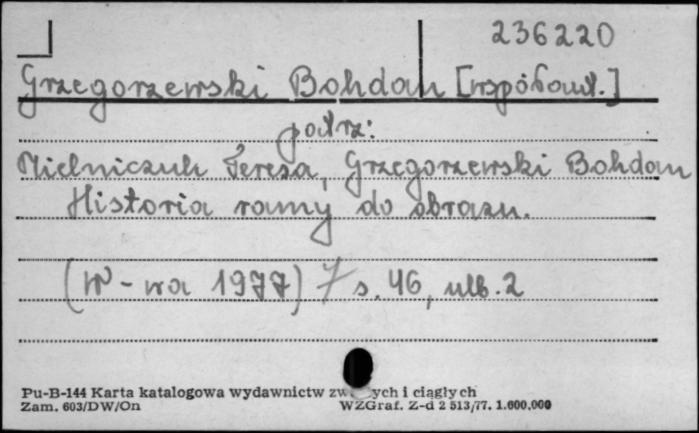 236220
Grzegorzewski Bohdan [współaut.]
patrz:
Mielniczuk Teresa, Grzegorzewski Bohdan
Historia ramy do obrazu.
(W-wa 1977) s. 46, nlb. 2
Pu-B-144 Karta katalogowa wydawnictw i ciągłych
Zam. 603/DW/On WZGraf. Z-d 2 513/77. 1.600.000